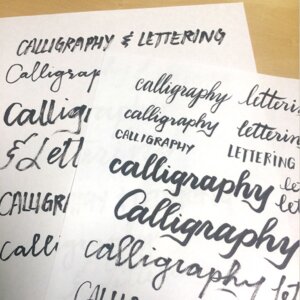 CALLIGRAPHY & LETTERING
Calligrap
Calligr
& Lett
CALLIG
Calli
calligraphy lettering
calligraphy lettering
CALLIGRAPHY LETTERING
calligraphy
Calligraphy
calligraphy